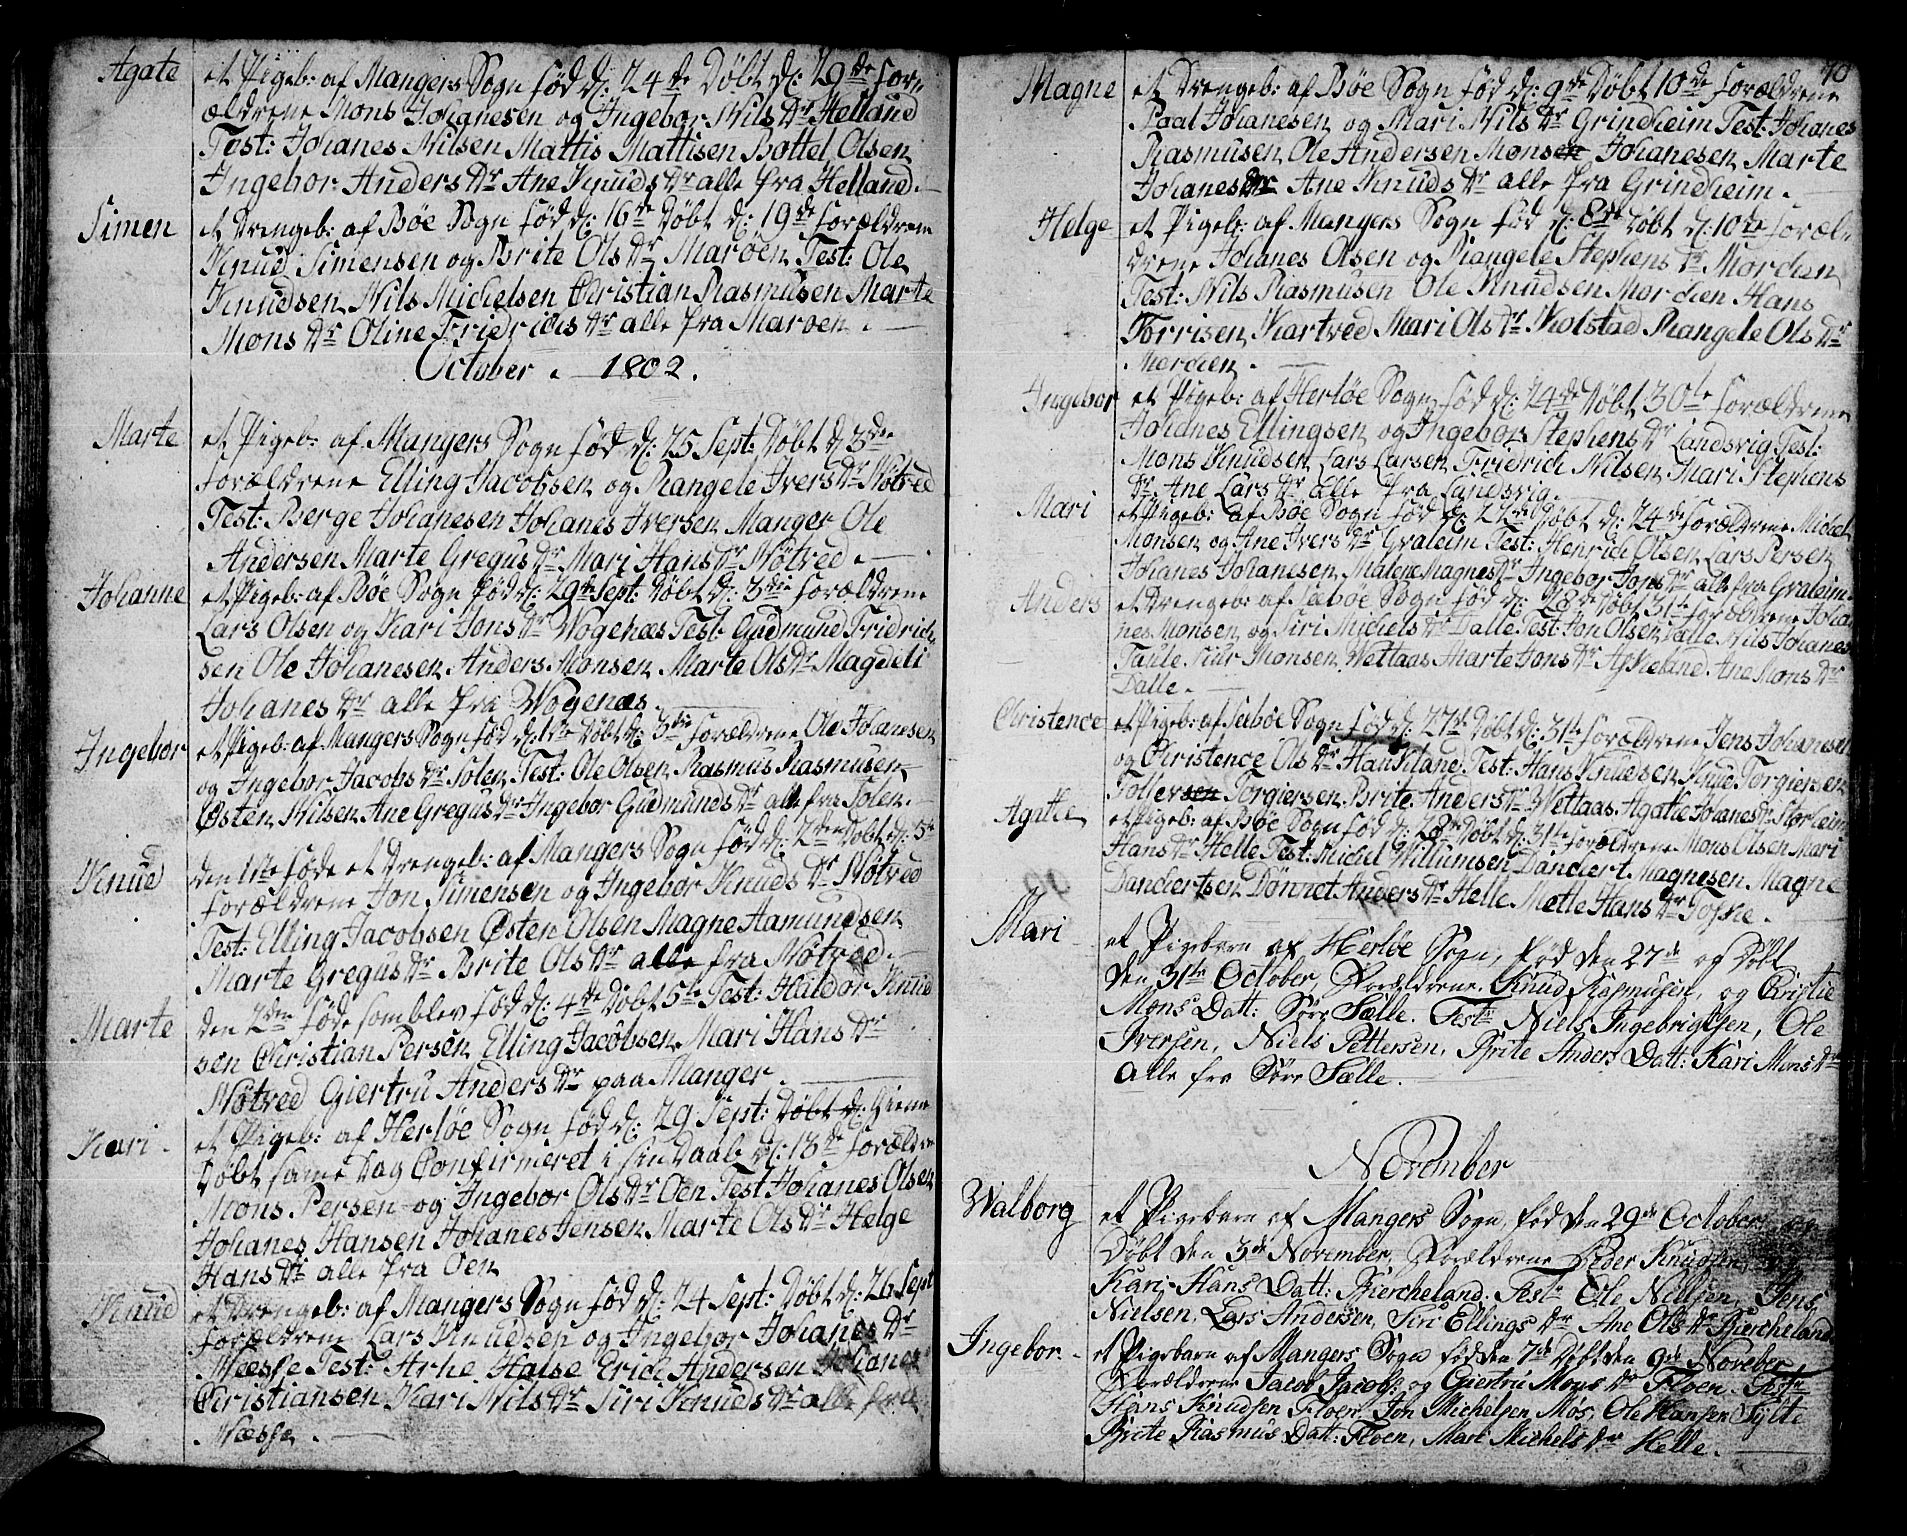 Agate et Pigeb: af Mangers Sogn fød d: 24de Døbt d: 29de for-
ældrene Mons Johanesen og Ingebor Nils Dr Helland
Test: Johanes Nilsen Mattis Mattisen Bottel Olsen
Ingebor Anders Dr Ane Knuds Dr alle fra Helland.
Simen et Drengeb: af Bøe Sogn fød d: 16de Døbt d: 19de forældrene
Knud Simensen og Brite Ols Dr Marøen Test: Ole
Knudsen Nils Michelsen Christian Rasmusen Marte
Mons Dr Oline Fridrichs Dr alle fra Marøen.
October 1802.
Marte et Pigeb: af Mangers Sogn fød d: 25 Sept: Døbt d 3die
forældrene Elling Jacobsen og Rangele Ivers Dr Nøtved
Test: Berge Johanesen Johanes Iversen Manger Ole
Andersen Marte Gregus Dr Mari Hans Dr Nøtved.
Johanne et Pigeb: af Bøe Sogn fød d: 29de Sept: Døbt d: 3die forældrene
Lars Olsen og Kari Jons Dr Wogenæs Test: Gudmund Fridrich
sen Ole Johanesen Anders Monsen Marte Ols Dr Magdeli
Johanes Dr alle fra Wogenæs.
Ingebor et Pigeb: af Mangers Sogn fød d: 1te Døbt d: 3die forældrene Ole Johanesen
og Ingebor Jacobs Dr Solen Test: Ole Olsen Rasmus Rasmusen
Østen Nilsen Ane Gregus Dr Ingebor Gudmunds Dr alle fra Solen.
Knud den 1ste føde et Drengeb: af Mangers Sogn fød d: 2den Døbt d: 5te
forældrene Jon Simensen og Ingebor Knuds Dr Nøtved
Test: Elling Jacobsen Østen Olsen Magne Hamundsen
Marte Gregus Dr Brite Ols Dr alle fra Nøtved.
Marte den 2den føde som blev fød d: 4de Døbt 5te Test: Haldor Knud
sen Christian Persen Elling Jacobsen Mari Hans Dr
Nøtved Giertru Anders Dr paa Manger.
Kari et Pigeb: af Herløe Sogn fød d: 29 Sept: Døbt d: Hieme
Døbt samme Dag Confirmeret i sin Daab d: 13de forældre
Mons Persen og Ingebor Ols Dr Oen Test Johanes Olsen
Johanes Hansen Johanes Jensen Marte Ols Dr Helge
Hans Dr alle fra Oen
Knud et Drengeb: af Mangers Sogn fød d: 24 Sept: Døbt d: 26 Sept
forældrene Lars Knudsen og Ingebor Johanes Dr
Næsse Test: Arne Halse Erich Andersen Johanes
Christiansen Kari Nils Dr Siri Knuds Dr alle fra
Næsse.
70
Magne et Drengeb: af Bøe Sogn fød d: 9de Døbt 10de forældrene
Paal Johanesen og Mari Nils Dr Grindheim Test: Johanes
Rasmusen Ole Andersen Monsen Johanesen Marte
Johanes Dr Ane Knuds Dr alle fra Grindheim.
Helge et Pigeb: af Mangers Sogn fød d: 8de Døbt d: 10de foræl-
drene Johanes Olsen og Rangele Stephens Dr Morchen
Test: Nils Rasmusen Ole Knudsen Morchen Hans
Torrisen Kartved Mari Ols Dr Kolstad Rangele Ols Dr
Morchen.
Ingebor et Pigeb: af Herløe Sogn fød d: 24de Døbt 30te forældrene
Johanes Ellingsen og Ingebor Stephens Dr Landsvig Test:
Mons Knudsen Lars Larsen Fridrich Nilsen Mari Stephens
Dr Ane Lars Dr alle fra Landsvig.
Mari et Pigeb: af Bøe Sogn fød d: 22de Døbt d: 24de forældrene Michel
Monsen og Ane Ivers Dr Gvaleim Test: Henrich Olsen Lars Persen
Johanes Johanesen Malene Magnes Dr Ingebor Jons Dr alle fra Gvaleim.
Anders et Drengeb: af Sæbøe Sogn fød d: 28de Døbt 31te forældrene Joha
nes Monsen og Siri Michels Dr Dalle Test: Jon Olsen Dalle Nils Johanes
Tahle Siur Monsen Wettaas Marte Jons Dr Askeland Ane Mons Dr
Dalle.
Christence et Pigeb: af Sæbøe Sogn fød d: 27de Døbt d: 31te forældrene Jens Johanesen
og Christence Ols Dr Haukland Test: Hans Knudsen Knud Torgiersen
Tollersen Torgiersen Brite Anders Dr Wettaas Agathe Johanes Dr Storheim
Agathe et Pigeb: af Bøe Sogn fød d: 28de Døbt d: 31te forældrene Mons Olsen Mari
Hans Dr Helle Test: Michel Willumsen Danchert Magnesen Magne
Danchertsen Dønnet Anders Dr Helle Mette Hans Dr Toske.
Mari et Pigebarn af Herløe Sogn, fød den 27de og Døbt
den 31te October, Forældrene Knud Rasmusen, og Christie
Mons Datt: Søre Sælle. Test: Niels Ingebrigtsen, Ole
Iversen, Niels Pettersen, Brite Anders Datt: Kari Mons Dr
alle fra Søre Sælle.
November
Walborg et Pigebarn af Mangers Sogn, fød den 29de October
Døbt den 3de November, Forældrene Peder Knudsen,
Kari Hans Datt: Bircheland. Test: Ole Nielsen, Jens
Nielsen, Lars Andersen, Siri Ellings Dr Ane Ols Dr Bircheland
Ingebor et Pigebarn af Mangers Sogn fød den 7de Døbt den 9de Noveber,
Forældrene Jacob Jacobs: og Giertru Mons Dr Floen. Test:
Hans Knudsen Floen, Jon Michelsen Mos, Ole Hansen Sylte
Brite Rasmus Datt: Floen, Mari Michels Dr Helle.